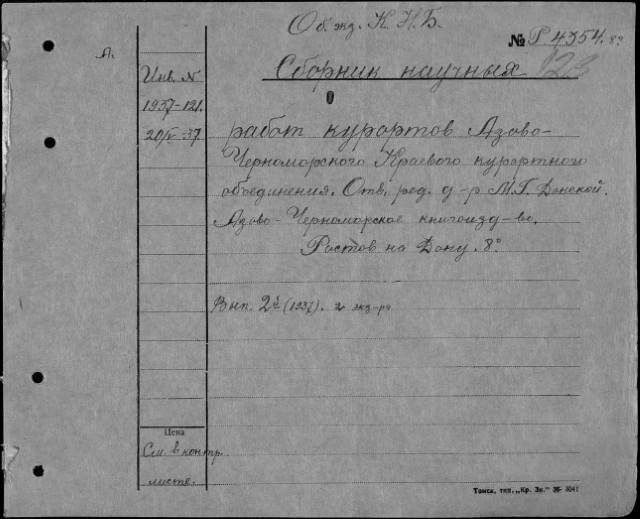 Об. экз. К.Н.Б.
№ Р.4354. 8º
А.
Инв. N
Сборник научных
123
1937-121.
20/V-37
работ курортов Азово-
Черноморского Краевого курортного
объединения. Отв. ред. д-р М.Г. Донской.
Азово-Черноморское книгоизд-во.
Ростов на Дону. 8º
Вып. 2й (1937). 2 экз-ра
Цена
См. в контр.
листе.
Томск, тип. „Кр. Зн."